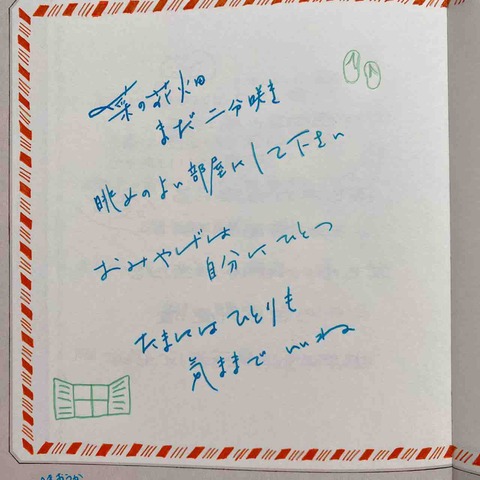 菜の花畑
まだ二分咲き
眺めのよい部屋にして下さい
おみやげは
自分にひとつ
たまにはひとりも
気ままでいいね